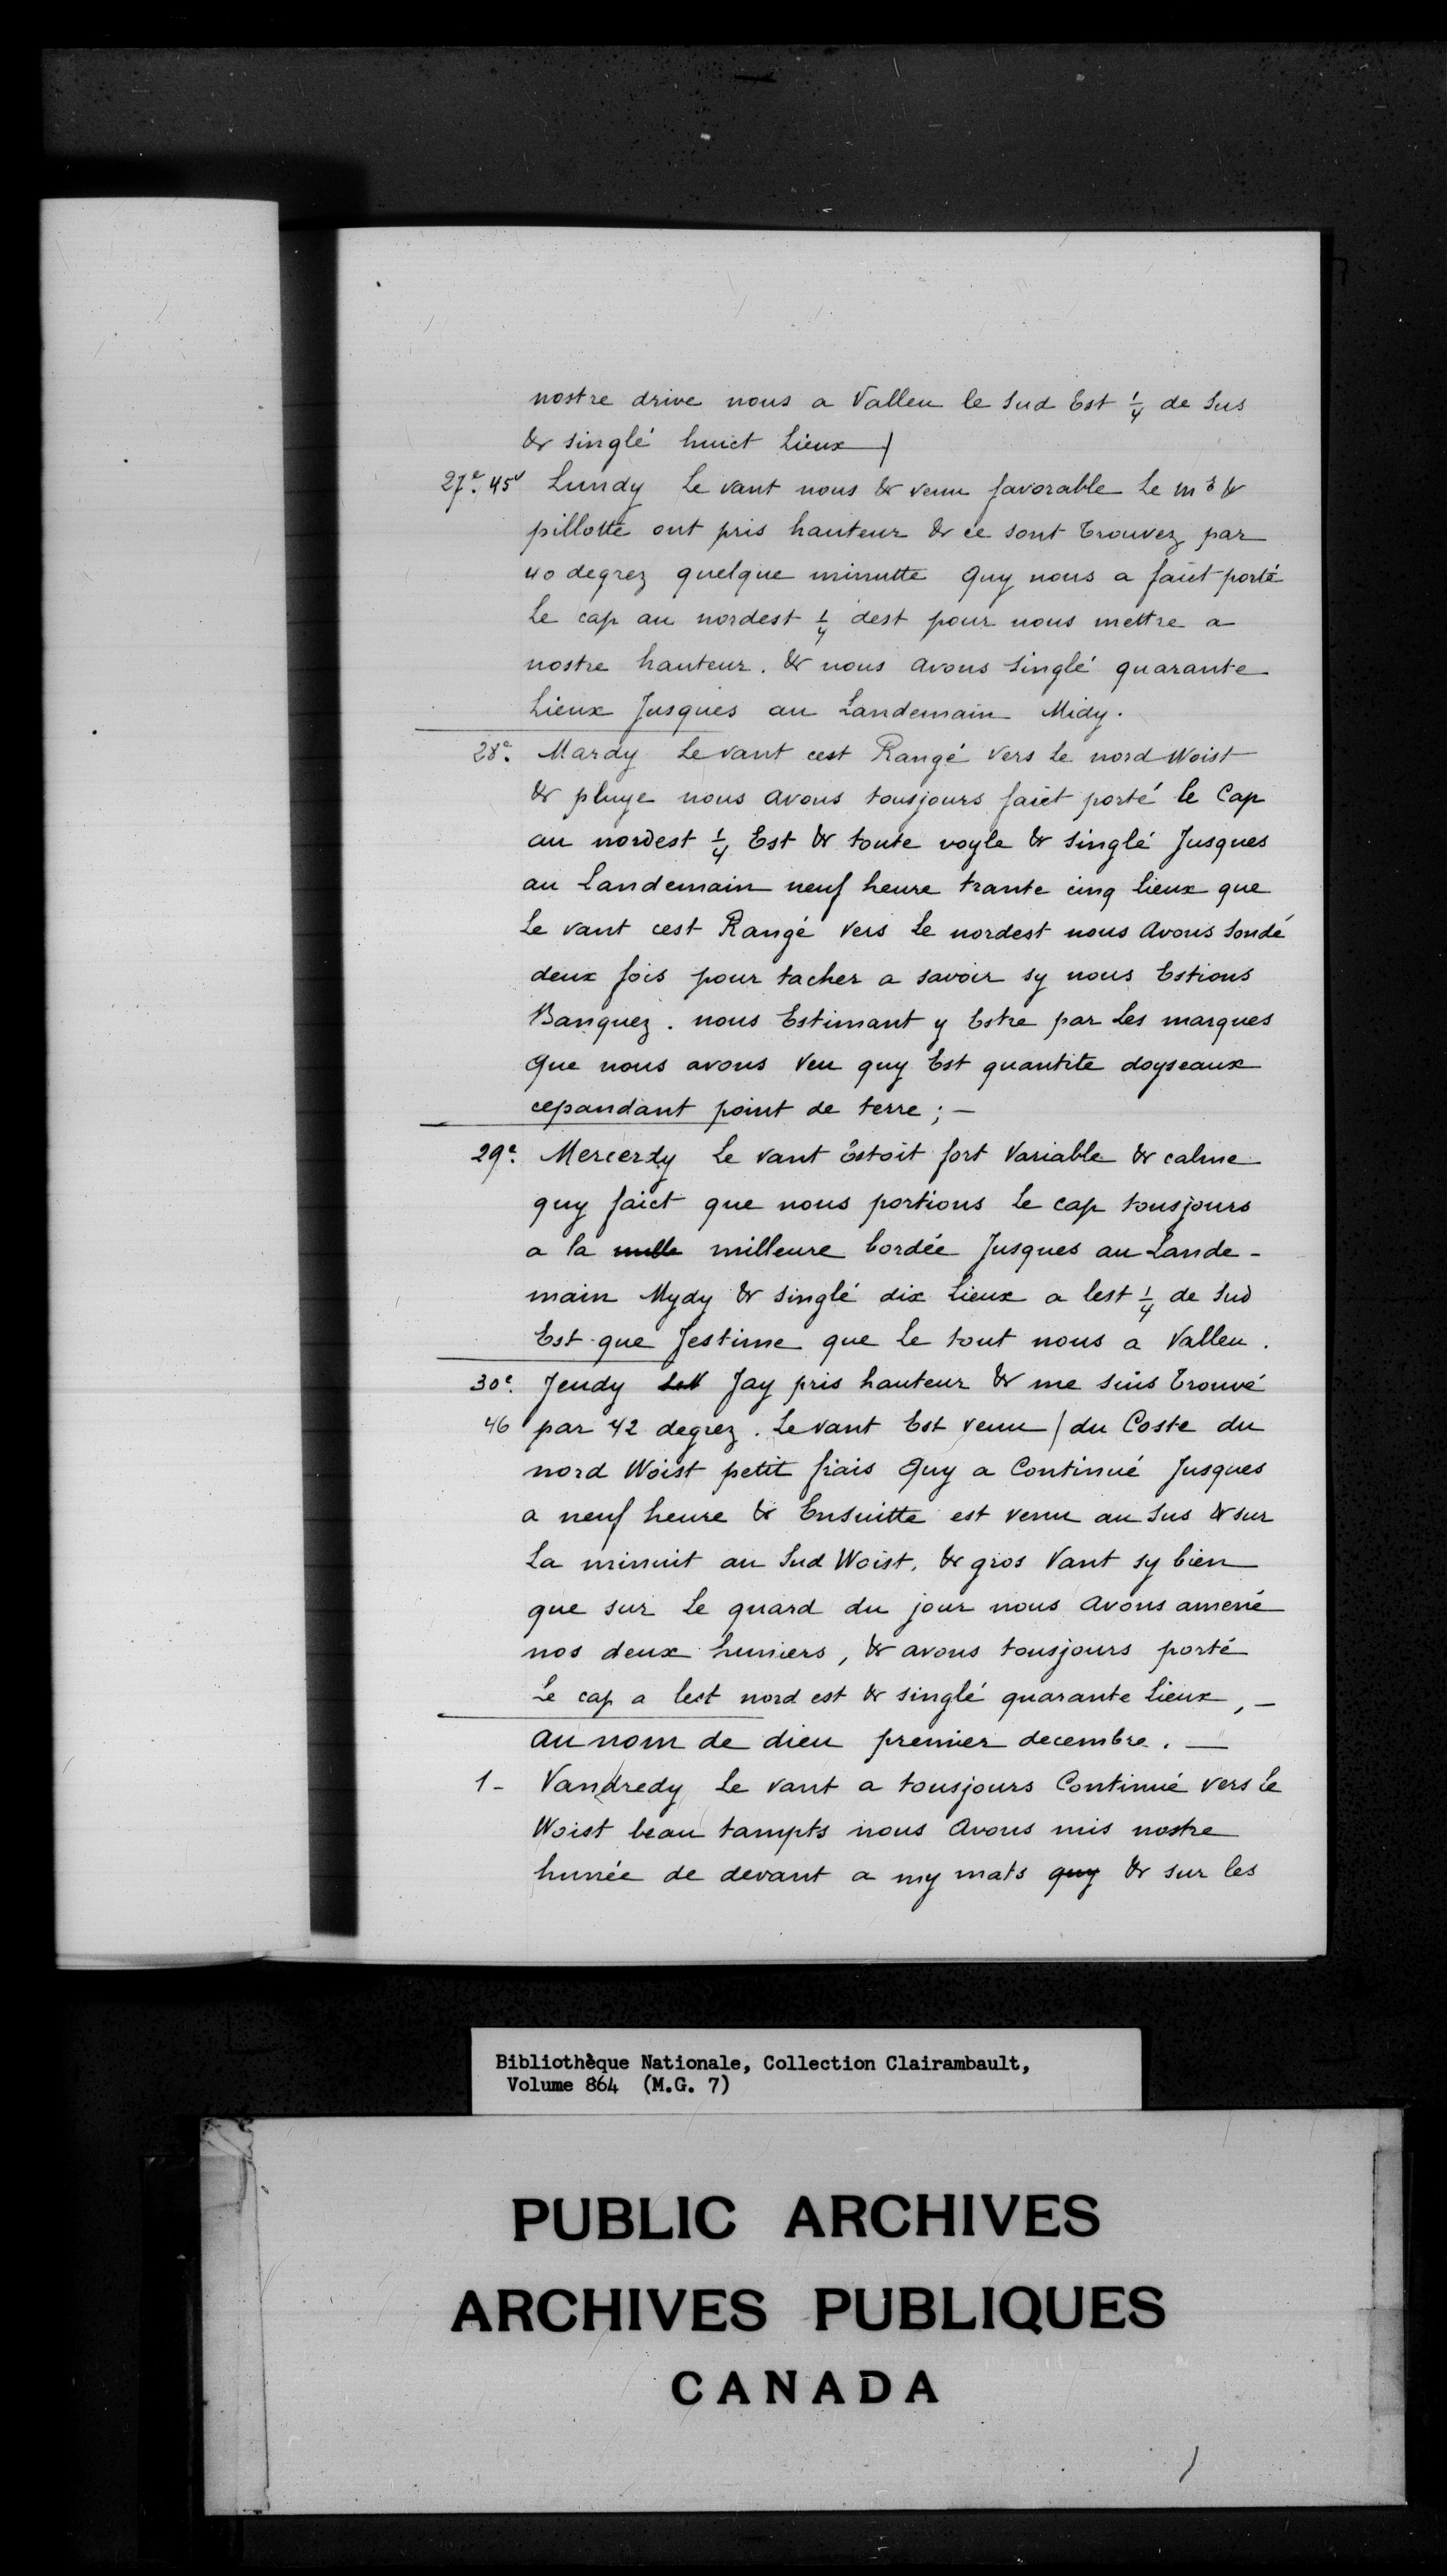 nostre drive nous a Valleu le Sud Est 1/4 de Sus
& singlé huict Lieux /
27e. 45v Lundy Le vant nous & venu favorable Le mr &
pillotte ont pris hauteur & ce sont trouvez par
40 degrez quelque minutte Quy nous a faict porté
Le cap au nordest 1/4 dest pour nous mettre a
nostre hauteur. & nous avons singlé quarante
Lieux Jusques au Landemain Midy.
28e. Mardy Le vant cest Rangé vers Le nord Woist
& pluye nous avons tousjours faict porté le Cap
au nordest 1/4 Est & toute voyle & singlé Jusques
au Landemain neuf heure trante cinq lieux que
Le vant cest Rangé vers Le nordest nous avons sondé
deux fois pour tacher a savoir sy nous Estions
Banquez. nous Estimant y Estre par Les marques
Que nous avons veu quy Est quantite doyseaux
cepandant point de terre ; –
29e. Mercerdy Le vant Estoit fort Variable & calme
quy faict que nous portions Le cap tousjours
a la milleure bordée Jusques au Lande-
main Mydy & singlé dix Lieux a lest 1/4 de Sud
Est que Jestime que Le tout nous a Valleu.
30e. Jeudy Jay pris hauteur & me suis trouvé
46 par 42 degrez. Le vant Est venu / du Coste du
nord Woist petit frais Quy a Continué Jusques
a neuf heure & Ensuitte est venu au Sus & sur
La minuit au Sud Woist, & gros Vant sy bien
que sur Le quard du jour nous avons amené
nos deux huniers, & avons tousjours porté
Le cap a lest nord est & singlé quarante Lieux, –
au nom de dieu premier decembre. –
1 - Vandredy Le vant a tousjours Continué vers Le
Woist beau tampts nous avons mis nostre
hunée de devant a my mats quy & sur les
Bibliothèque Nationale, Collection Clairambault,
Volume 864 (M.G. 7)
PUBLIC ARCHIVES
ARCHIVES PUBLIQUES
CANADA